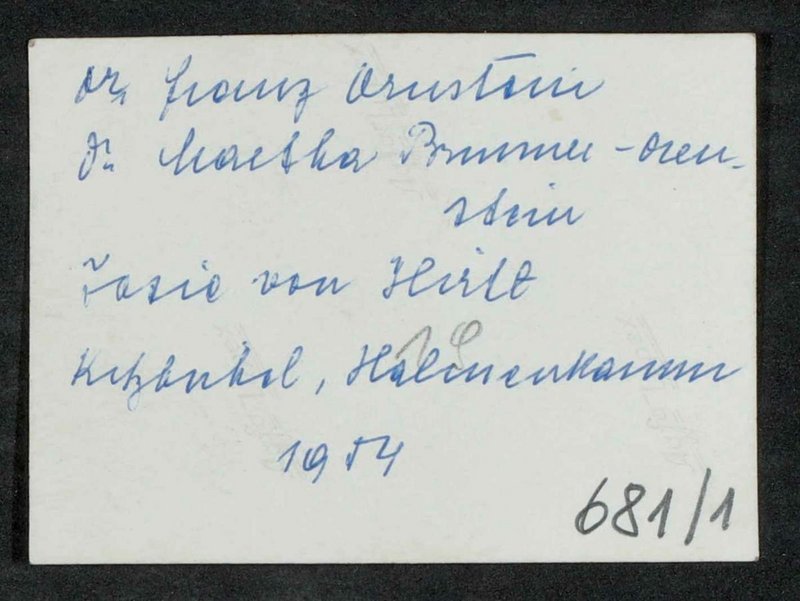 Dr. Franz Ornstein
Dr. Martha Brunner-Oren-
stein
Josie von Hirst
Kitzbühel, Hahnenkamm
1954
681/1